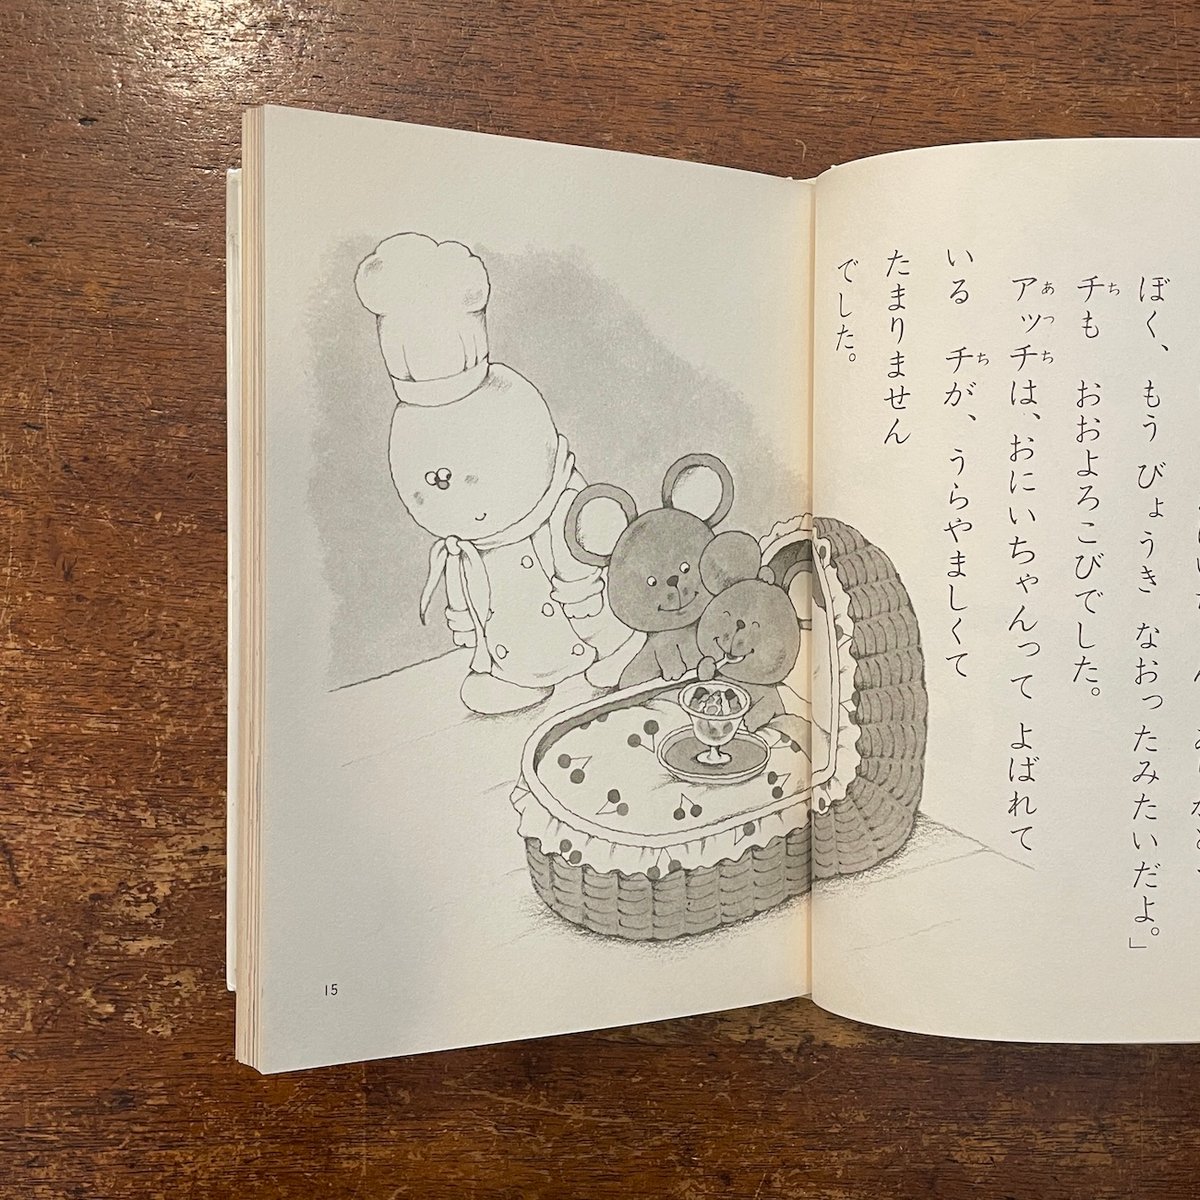 ぼく、もう びょうき なおったみたいだよ。」
チも おおよろこびでした。
アッチは、おにいちゃんって よばれて
いる チが、うらやましくて
たまりません
でした。
15